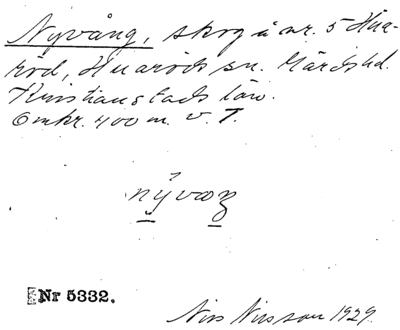 Nyvång, skog å nr. 5 Hua-
röd, Huaröds sn. Gärds hd.
Kristianstads län.
Omkr. 400 m. v. T.
nývaŋ
Nr 5332.
Nils Nilsson 1929.